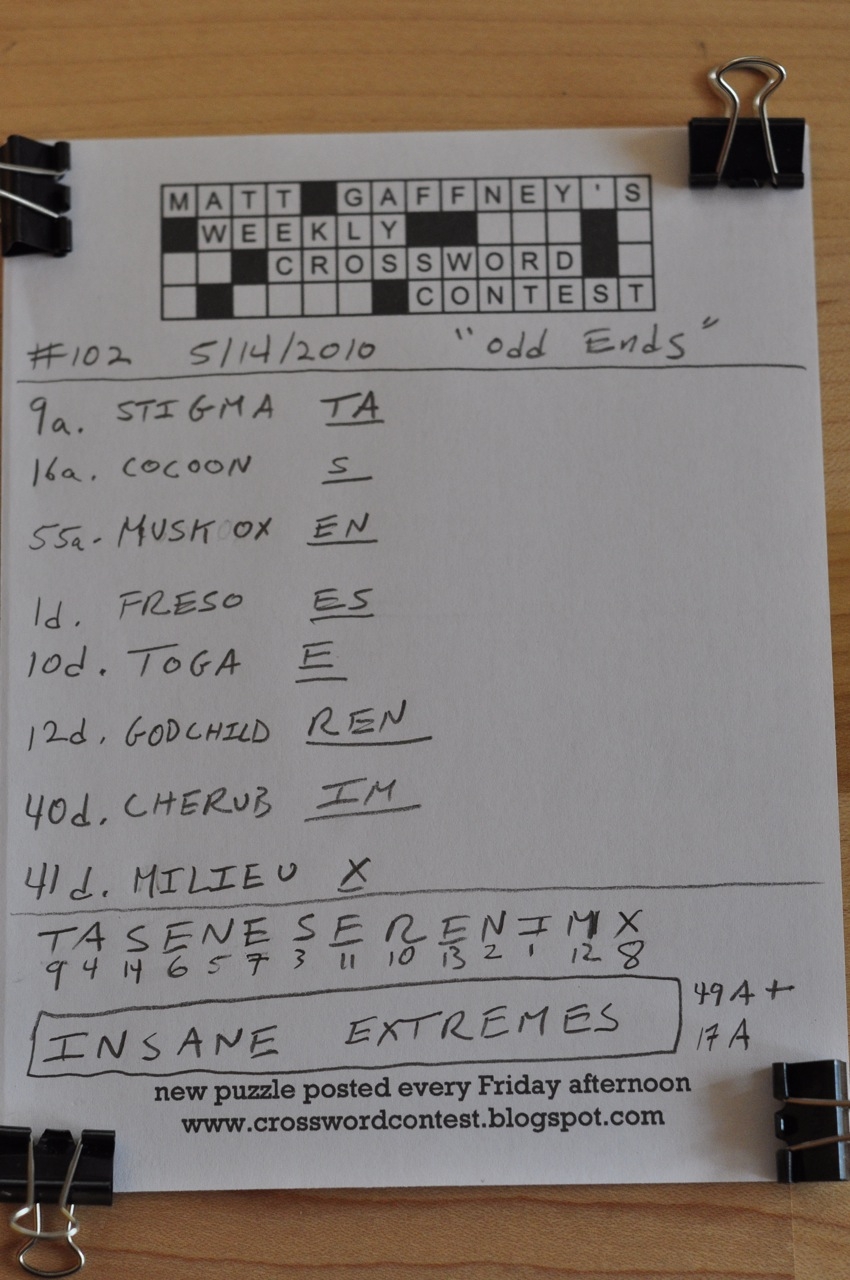 MATT GAFFNEY'S
WEEKLY
CROSSWORD
CONTEST
#102 5/14/2010 "Odd Ends"
9a. STIGMA TA
16a. COCOON S
55a. MUSK OX EN
1d. FRESO ES
10d. TOGA E
12d. GODCHILD REN
40d. CHERUB IM
41d. MILIEU X
TA S EN ES E REN IM X
9 4 14 6 5 7 3 11 10 13 2 1 12 8
INSANE EXTREMES 49A +
17A
new puzzle posted every Friday afternoon
www.crosswordcontest.blogspot.com